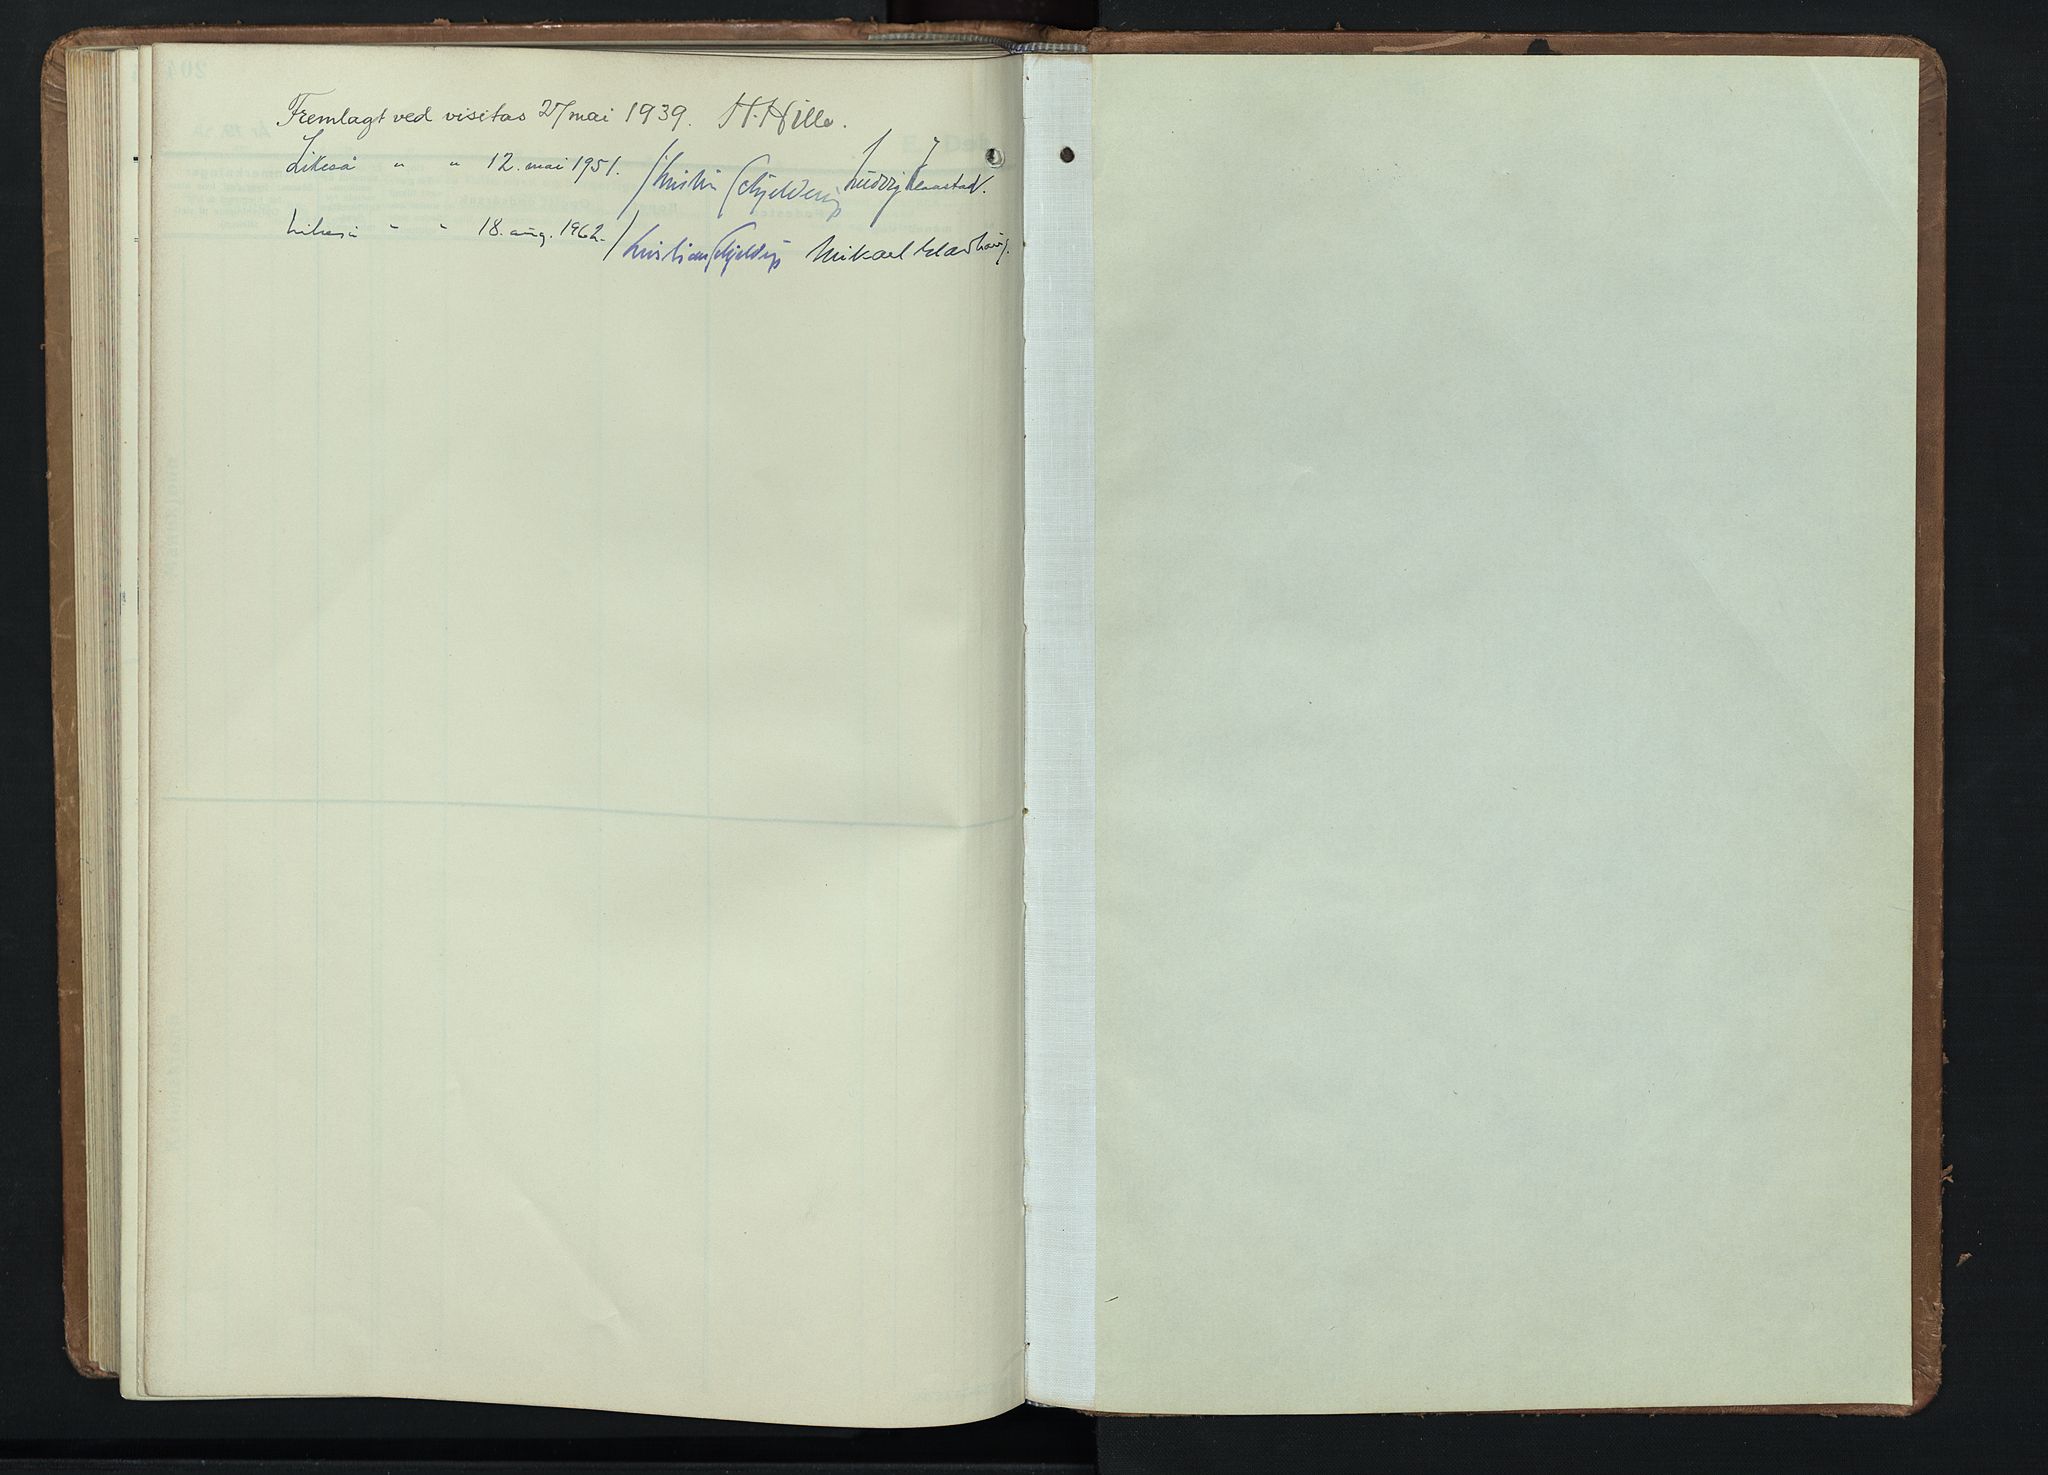 Fremlagt ved visitas 27/mai 1939. H. Hille.
Likeså " " 12. mai 1951. Kristian Schjelderup Ludvig
Likeså " " 18. aug. 1962. Kristian Schjelderup Mikael